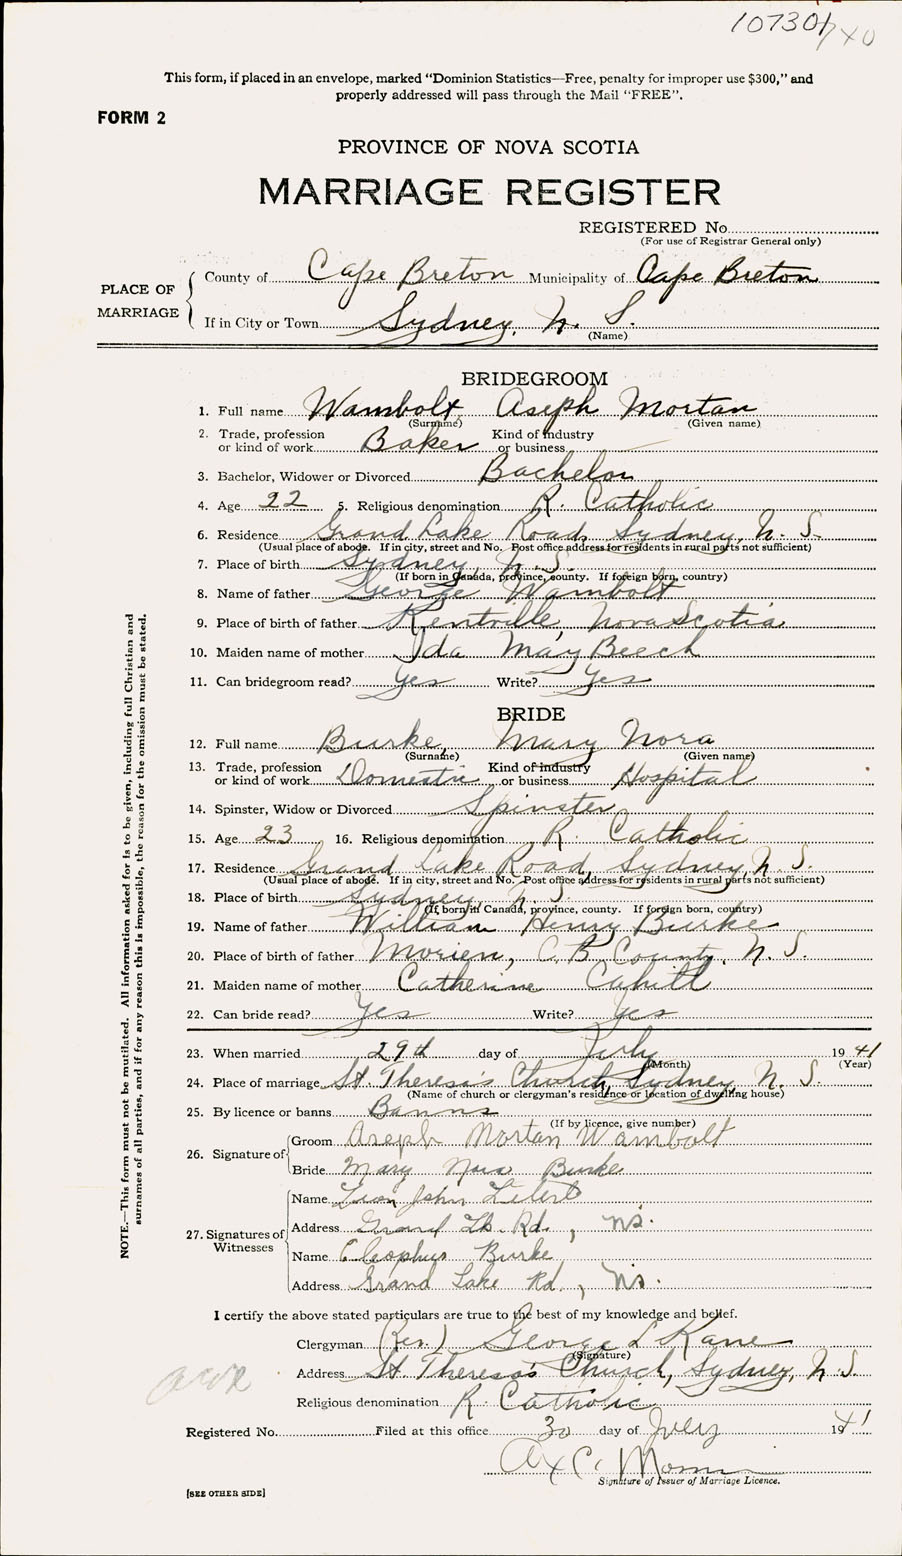 107301/40
This form, if placed in an envelope, marked "Dominion Statistics—Free, penalty for improper use $300," and
properly addressed will pass through the Mail "FREE".
FORM 2
PROVINCE OF NOVA SCOTIA
MARRIAGE REGISTER
REGISTERED No
(For use of Registrar General only)
PLACE OF MARRIAGE
County of Cape Breton Municipality of Cape Breton
If in City or Town Sydney, N. S.
(Name)
BRIDEGROOM
1. Full name Wambolt Aseph Mortan
(Surname) (Given name)
2. Trade, profession or kind of work Baker Kind of industry or business
3. Bachelor, Widower or Divorced Bachelor
4. Age 22 5. Religious denomination R. Catholic
6. Residence Grand Lake Road, Sydney, N. S.
(Usual place of abode. If in city, street and No. Post office address for residents in rural parts not sufficient)
7. Place of birth Sydney, N. S.
(If born in Canada, province, county. If foreign born, country)
8. Name of father George Wambolt
9. Place of birth of father Kentville, Nova Scotia
10. Maiden name of mother Ida May Beech
11. Can bridegroom read? Yes Write? Yes
BRIDE
12. Full name Burke, Mary Nora
(Surname) (Given name)
13. Trade, profession or kind of work Domestic Kind of industry or business Hospital
14. Spinster, Widow or Divorced Spinster
15. Age 23 16. Religious denomination R. Catholic
17. Residence Grand Lake Road, Sydney, N. S.
(Usual place of abode. If in city, street and No. Post office address for residents in rural parts not sufficient)
18. Place of birth Sydney, N. S.
(If born in Canada, province, county. If foreign born, country)
19. Name of father William Henry Burke
20. Place of birth of father Morien, C. B. County, N. S.
21. Maiden name of mother Catherine Cahill
22. Can bride read? Yes Write? Yes
23. When married 29th day of July 1941
(Month) (Year)
24. Place of marriage St. Theresa's Church, Sydney N. S.
(Name of church or clergyman's residence or location of dwelling house)
25. By licence or banns Banns
(If by licence, give number)
26. Signature of
Groom Aseph Mortan Wambolt
Bride Mary Nora Burke
27. Signatures of Witnesses
Name John
Address Grand Lk Rd., NS.
Name Cleophus Burke
Address Grand Lake Rd., NS.
I certify the above stated particulars are true to the best of my knowledge and belief.
Clergyman (Rev.) George L Kane
(Signature)
Address St. Theresa's Church, Sydney, N. S.
Religious denomination R. Catholic
Registered No. Filed at this office 30 day of July 1941
Signature of Issuer of Marriage Licence.
[SEE OTHER SIDE]
NOTE.—This form must not be mutilated. All information asked for is to be given, including full Christian and
surnames of all parties, and if for any reason this is impossible, the reason for the omission must be stated.